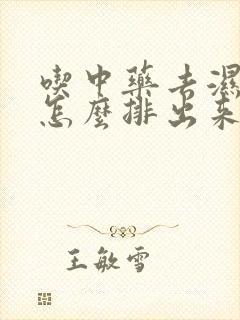 喫中藥去濕
怎麼排出來
王敏雪